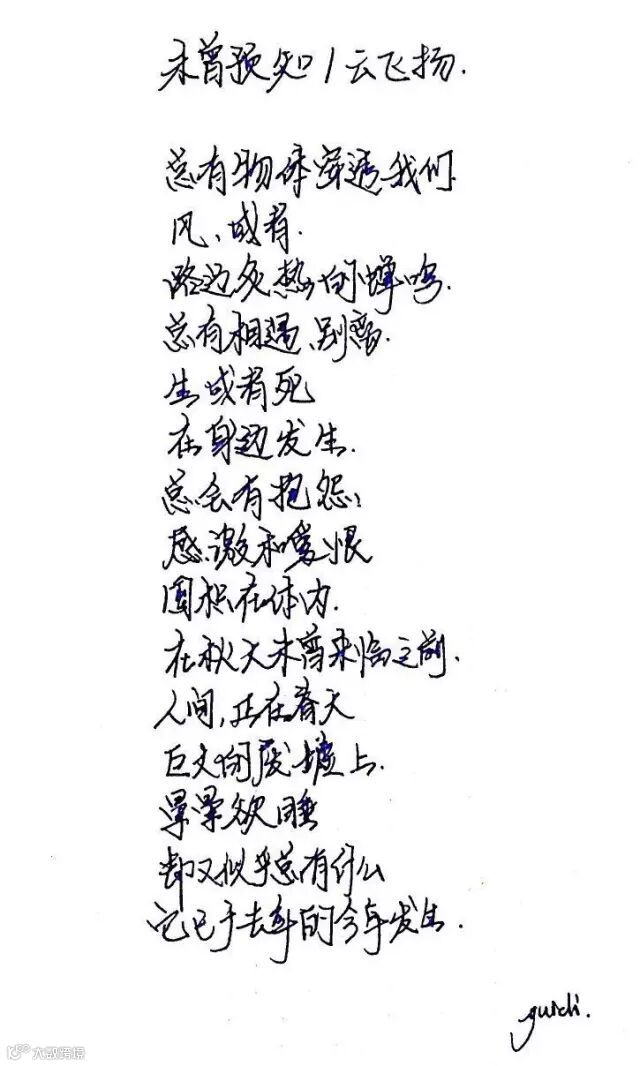 未曾预知/云飞扬.
总有物体穿透我们
风、或者.
路边炙热的蝉鸣.
总有相遇、别离.
生或者死
在身边发生.
总会有抱怨,
感激和爱恨
囤积在体内.
在秋天未曾来临之前.
人间,正在春天
巨大的废墟上.
晕晕欲睡
却又似乎总有什么
它已于去年的今年发生.
guidi.
大数跨境